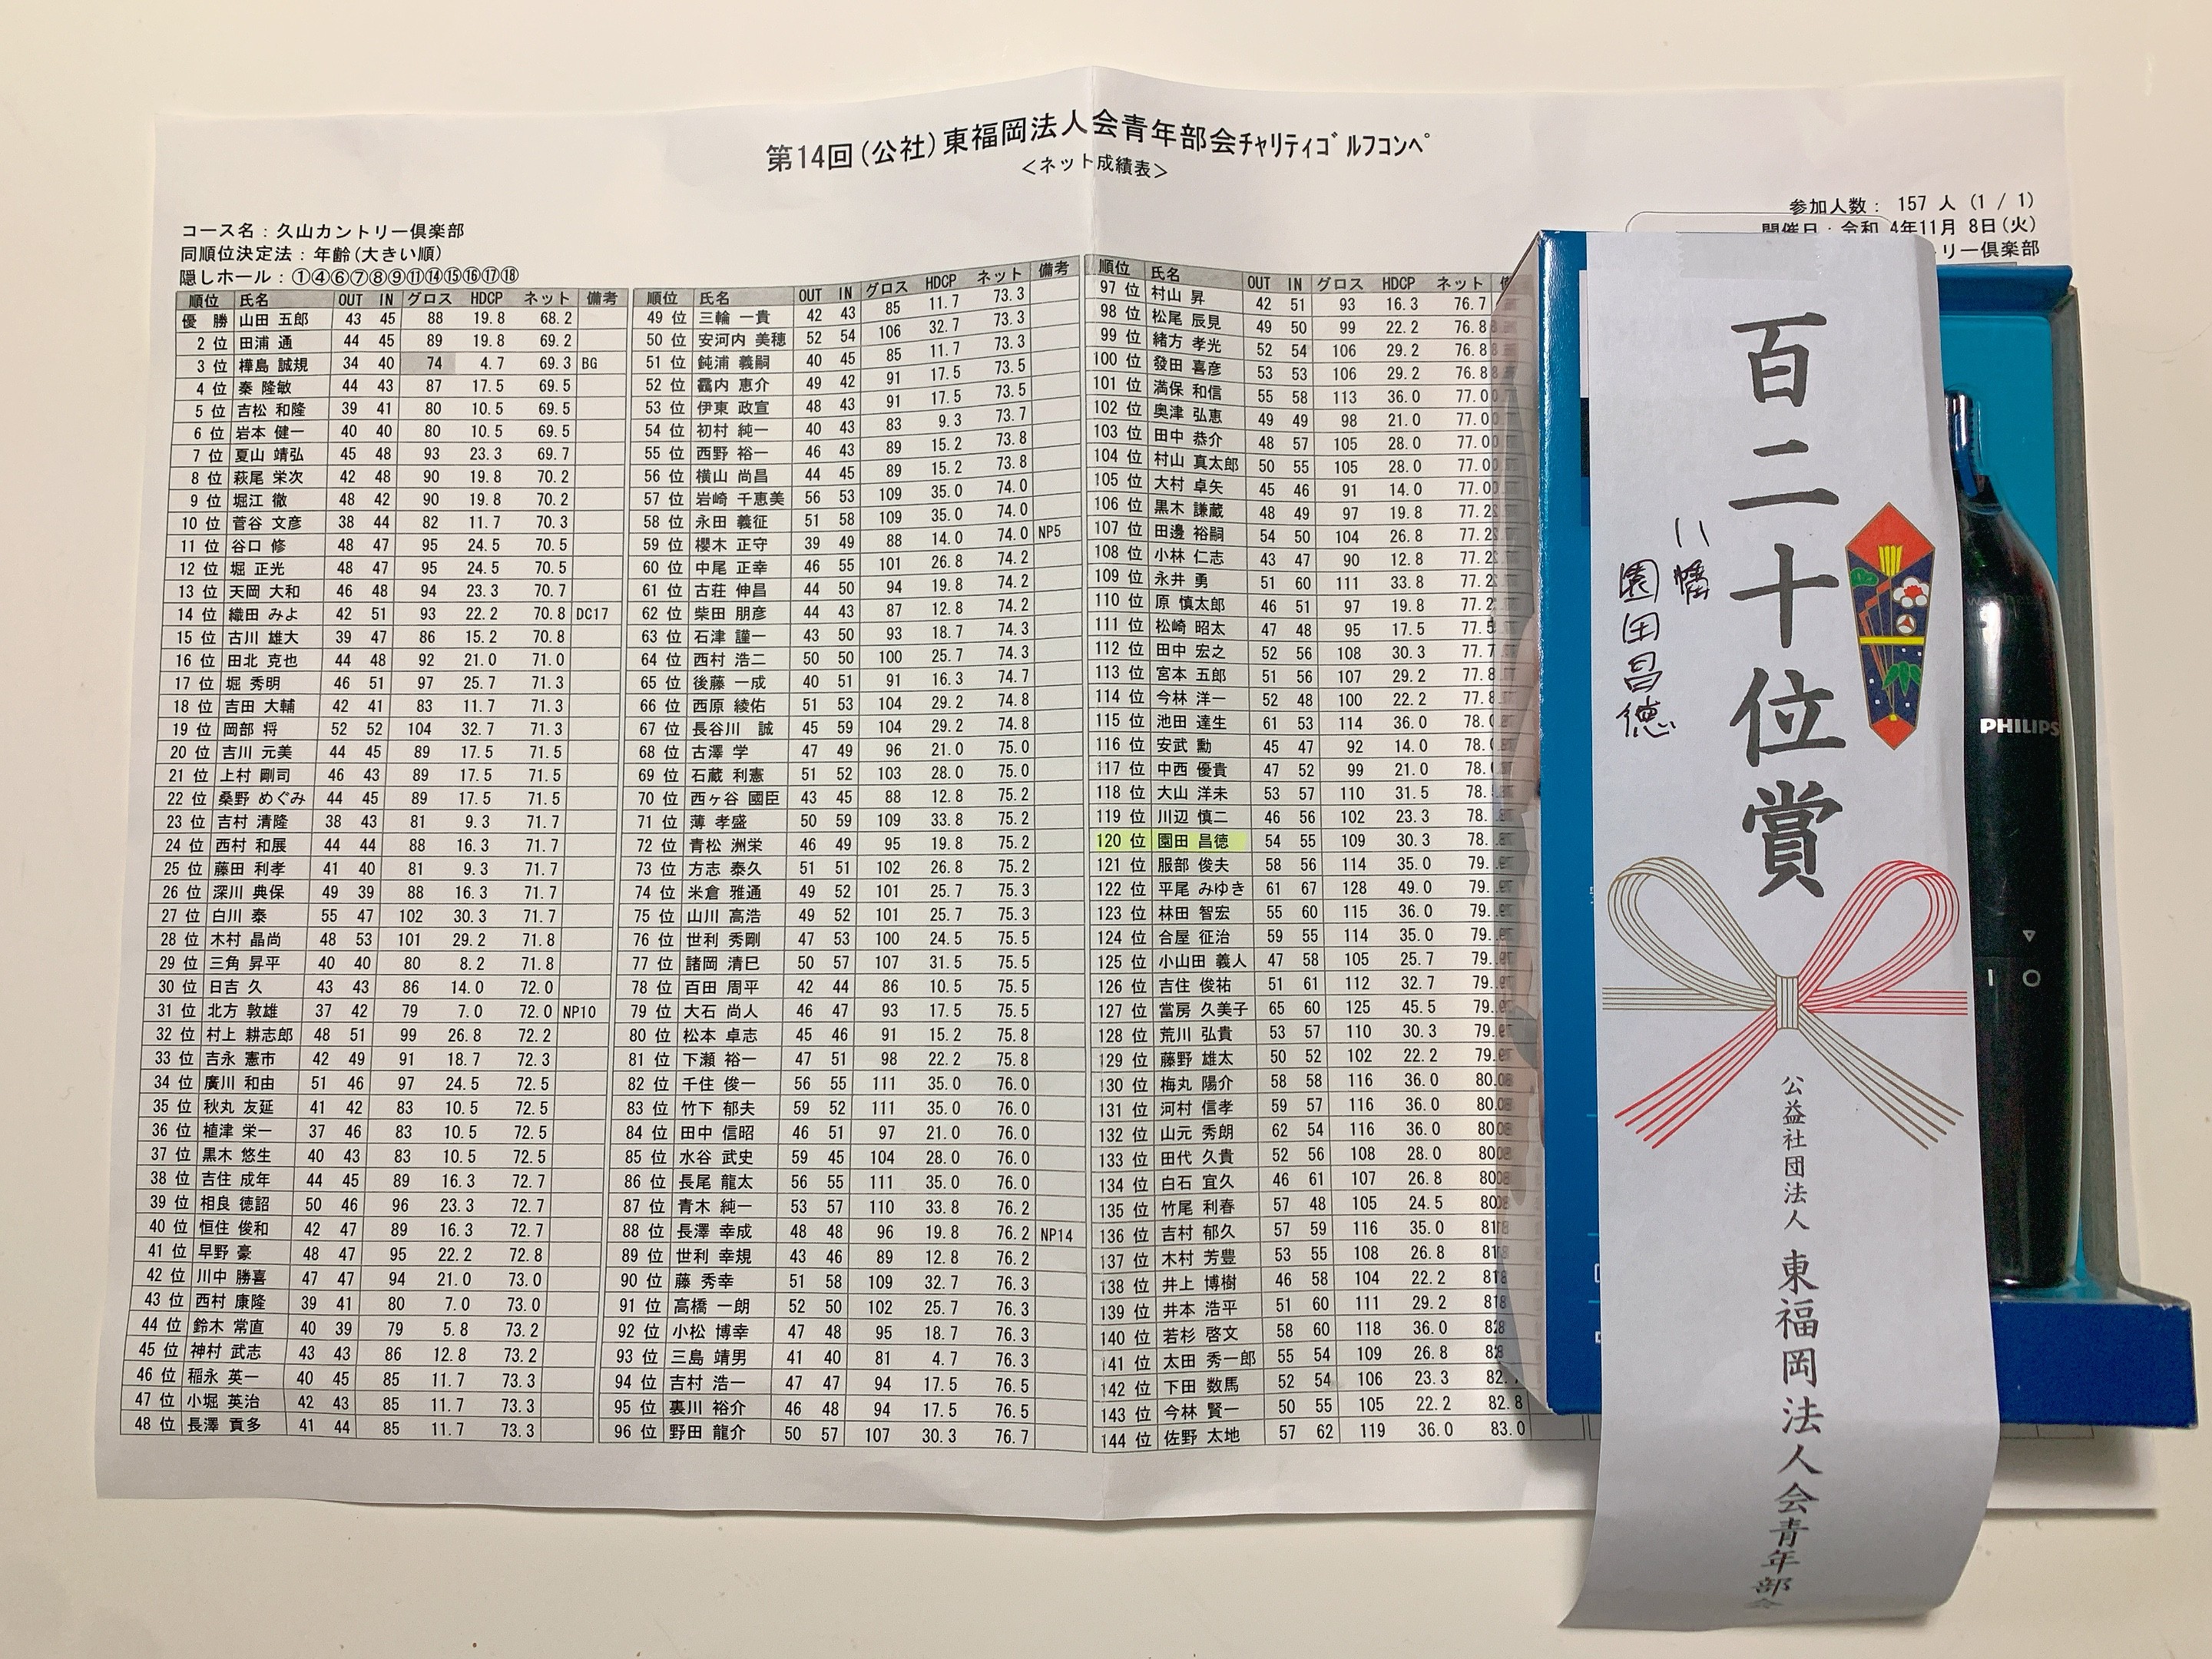 第14回(公社)東福岡法人会青年部会ﾁｬﾘﾃｨｺﾞﾙﾌｺﾝﾍﾟ
<ネット成績表>
参加人数： 157 人 (1 / 1)
開催日：令和 4年11月 8日(火)
リー倶楽部
コース名：久山カントリー倶楽部
同順位決定法：年齢(大きい順)
隠しホール：①④⑥⑦⑧⑨⑪⑭⑮⑯⑰⑱
順位 氏名 OUT IN グロス HDCP ネット 備考
優 勝 山田 五郎 43 45 88 19.8 68.2
2 位 田浦 通 44 45 89 19.8 69.2
3 位 樺島 誠規 34 40 74 4.7 69.3 BG
4 位 秦 隆敏 44 43 87 17.5 69.5
5 位 吉松 和隆 39 41 80 10.5 69.5
6 位 岩本 健一 40 40 80 10.5 69.5
7 位 夏山 靖弘 45 48 93 23.3 69.7
8 位 萩尾 栄次 42 48 90 19.8 70.2
9 位 堀江 徹 48 42 90 19.8 70.2
10 位 菅谷 文彦 38 44 82 11.7 70.3
11 位 谷口 修 48 47 95 24.5 70.5
12 位 堀 正光 48 47 95 24.5 70.5
13 位 天岡 大和 46 48 94 23.3 70.7
14 位 織田 みよ 42 51 93 22.2 70.8 DC17
15 位 古川 雄大 39 47 86 15.2 70.8
16 位 田北 克也 44 48 92 21.0 71.0
17 位 堀 秀明 46 51 97 25.7 71.3
18 位 吉田 大輔 42 41 83 11.7 71.3
19 位 岡部 将 52 52 104 32.7 71.3
20 位 吉川 元美 44 45 89 17.5 71.5
21 位 上村 剛司 46 43 89 17.5 71.5
22 位 桑野 めぐみ 44 45 89 17.5 71.5
23 位 吉村 清隆 38 43 81 9.3 71.7
24 位 西村 和展 44 44 88 16.3 71.7
25 位 藤田 利孝 41 40 81 9.3 71.7
26 位 深川 典保 49 39 88 16.3 71.7
27 位 白川 泰 55 47 102 30.3 71.7
28 位 木村 晶尚 48 53 101 29.2 71.8
29 位 三角 昇平 40 40 80 8.2 71.8
30 位 日吉 久 43 43 86 14.0 72.0
31 位 北方 敦雄 37 42 79 7.0 72.0 NP10
32 位 村上 耕志郎 48 51 99 26.8 72.2
33 位 吉永 憲市 42 49 91 18.7 72.3
34 位 廣川 和由 51 46 97 24.5 72.5
35 位 秋丸 友延 41 42 83 10.5 72.5
36 位 植津 栄一 37 46 83 10.5 72.5
37 位 黒木 悠生 40 43 83 10.5 72.5
38 位 吉住 成年 44 45 89 16.3 72.7
39 位 相良 徳詔 50 46 96 23.3 72.7
40 位 恒住 俊和 42 47 89 16.3 72.7
41 位 早野 豪 48 47 95 22.2 72.8
42 位 川中 勝喜 47 47 94 21.0 73.0
43 位 西村 康隆 39 41 80 7.0 73.0
44 位 鈴木 常直 40 39 79 5.8 73.2
45 位 神村 武志 43 43 86 12.8 73.2
46 位 稲永 英一 40 45 85 11.7 73.3
47 位 小堀 英治 42 43 85 11.7 73.3
48 位 長澤 貢多 41 44 85 11.7 73.3
順位 氏名 OUT IN グロス HDCP ネット 備考
49 位 三輪 一貴 42 43 85 11.7 73.3
50 位 安河内 美穂 52 54 106 32.7 73.3
51 位 鈍浦 義嗣 40 45 85 11.7 73.3
52 位 靏内 恵介 49 42 91 17.5 73.5
53 位 伊東 政宣 48 43 91 17.5 73.5
54 位 初村 純一 40 43 83 9.3 73.7
55 位 西野 裕一 46 43 89 15.2 73.8
56 位 横山 尚昌 44 45 89 15.2 73.8
57 位 岩崎 千恵美 56 53 109 35.0 74.0
58 位 永田 義征 51 58 109 35.0 74.0
59 位 櫻木 正守 39 49 88 14.0 74.0 NP5
60 位 中尾 正幸 46 55 101 26.8 74.2
61 位 古荘 伸昌 44 50 94 19.8 74.2
62 位 柴田 朋彦 44 43 87 12.8 74.2
63 位 石津 謹一 43 50 93 18.7 74.3
64 位 西村 浩二 50 50 100 25.7 74.3
65 位 後藤 一成 40 51 91 16.3 74.7
66 位 西原 綾佑 51 53 104 29.2 74.8
67 位 長谷川 誠 45 59 104 29.2 74.8
68 位 古澤 学 47 49 96 21.0 75.0
69 位 石蔵 利憲 51 52 103 28.0 75.0
70 位 西ヶ谷 國臣 43 45 88 12.8 75.2
71 位 薄 孝盛 50 59 109 33.8 75.2
72 位 青松 洲栄 46 49 95 19.8 75.2
73 位 方志 泰久 51 51 102 26.8 75.2
74 位 米倉 雅通 49 52 101 25.7 75.3
75 位 山川 高浩 49 52 101 25.7 75.3
76 位 世利 秀剛 47 53 100 24.5 75.5
77 位 諸岡 清巳 50 57 107 31.5 75.5
78 位 百田 周平 42 44 86 10.5 75.5
79 位 大石 尚人 46 47 93 17.5 75.5
80 位 松本 卓志 45 46 91 15.2 75.8
81 位 下瀬 裕一 47 51 98 22.2 75.8
82 位 千住 俊一 56 55 111 35.0 76.0
83 位 竹下 郁夫 59 52 111 35.0 76.0
84 位 田中 信昭 46 51 97 21.0 76.0
85 位 水谷 武史 59 45 104 28.0 76.0
86 位 長尾 龍太 56 55 111 35.0 76.0
87 位 青木 純一 53 57 110 33.8 76.2
88 位 長澤 幸成 48 48 96 19.8 76.2 NP14
89 位 世利 幸規 43 46 89 12.8 76.2
90 位 藤 秀幸 51 58 109 32.7 76.3
91 位 高橋 一朗 52 50 102 25.7 76.3
92 位 小松 博幸 47 48 95 18.7 76.3
93 位 三島 靖男 41 40 81 4.7 76.3
94 位 吉村 浩一 47 47 94 17.5 76.5
95 位 裏川 裕介 46 48 94 17.5 76.5
96 位 野田 龍介 50 57 107 30.3 76.7
順位 氏名 OUT IN グロス HDCP ネット
97 位 村山 昇 42 51 93 16.3 76.7
98 位 松尾 辰見 49 50 99 22.2 76.8
99 位 緒方 孝光 52 54 106 29.2 76.8
100 位 發田 喜彦 53 53 106 29.2 76.8
101 位 満保 和信 55 58 113 36.0 77.0
102 位 奥津 弘恵 49 49 98 21.0 77.0
103 位 田中 恭介 48 57 105 28.0 77.0
104 位 村山 真太郎 50 55 105 28.0 77.0
105 位 大村 卓矢 45 46 91 14.0 77.0
106 位 黒木 謙蔵 48 49 97 19.8 77.2
107 位 田邊 裕嗣 54 50 104 26.8 77.2
108 位 小林 仁志 43 47 90 12.8 77.2
109 位 永井 勇 51 60 111 33.8 77.2
110 位 原 慎太郎 46 51 97 19.8 77.2
111 位 松崎 昭太 47 48 95 17.5 77.5
112 位 田中 宏之 52 56 108 30.3 77.7
113 位 宮本 五郎 51 56 107 29.2 77.8
114 位 今林 洋一 52 48 100 22.2 77.8
115 位 池田 達生 61 53 114 36.0 78.0
116 位 安武 勳 45 47 92 14.0 78.
117 位 中西 優貴 47 52 99 21.0 78.
118 位 大山 洋未 53 57 110 31.5 78.
119 位 川辺 慎二 46 56 102 23.3 78.
120 位 園田 昌徳 54 55 109 30.3 78.
121 位 服部 俊夫 58 56 114 35.0 79.
122 位 平尾 みゆき 61 67 128 49.0 79.
123 位 林田 智宏 55 60 115 36.0 79.
124 位 合屋 征治 59 55 114 35.0 79.
125 位 小山田 義人 47 58 105 25.7 79.
126 位 吉住 俊祐 51 61 112 32.7 79.
127 位 當房 久美子 65 60 125 45.5 79.
128 位 荒川 弘貴 53 57 110 30.3 79.
129 位 藤野 雄太 50 52 102 22.2 79.
130 位 梅丸 陽介 58 58 116 36.0 80.
131 位 河村 信孝 59 57 116 36.0 80.
132 位 山元 秀朗 62 54 116 36.0 80
133 位 田代 久貴 52 56 108 28.0 80
134 位 白石 宜久 46 61 107 26.8 80
135 位 竹尾 利春 57 48 105 24.5 80
136 位 吉村 郁久 57 59 116 35.0 81
137 位 木村 芳豊 53 55 108 26.8 81
138 位 井上 博樹 46 58 104 22.2 81
139 位 井本 浩平 51 60 111 29.2 81
140 位 若杉 啓文 58 60 118 36.0 82
141 位 太田 秀一郎 55 54 109 26.8
142 位 下田 数馬 52 54 106 23.3 82.
143 位 今林 賢一 50 55 105 22.2 82.8
144 位 佐野 太地 57 62 119 36.0 83.0
百二十位賞
八幡
園田昌徳
公益社団法人 東福岡法人会青年部会
PHILIPS